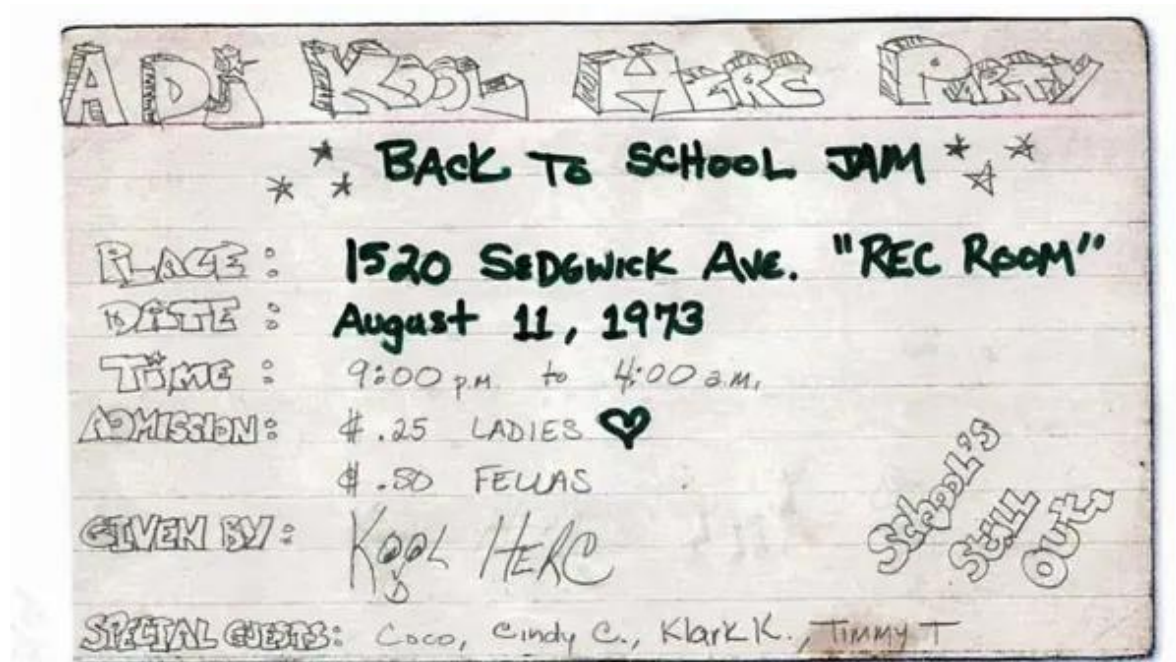 A DJ KOOL HERC PARTY
BACK TO SCHOOL JAM
PLACE: 1520 SEDGWICK AVE. "REC ROOM"
DATE: August 11, 1973
TIME: 9:00 p.m. to 4:00 a.m.
ADMISSION: $.25 LADIES
$.50 FELLAS
GIVEN BY: KOOL HERC
SCHOOL'S
STILL
OUT
SPECIAL GUESTS: Coco, Cindy C., Klark K., Timmy T